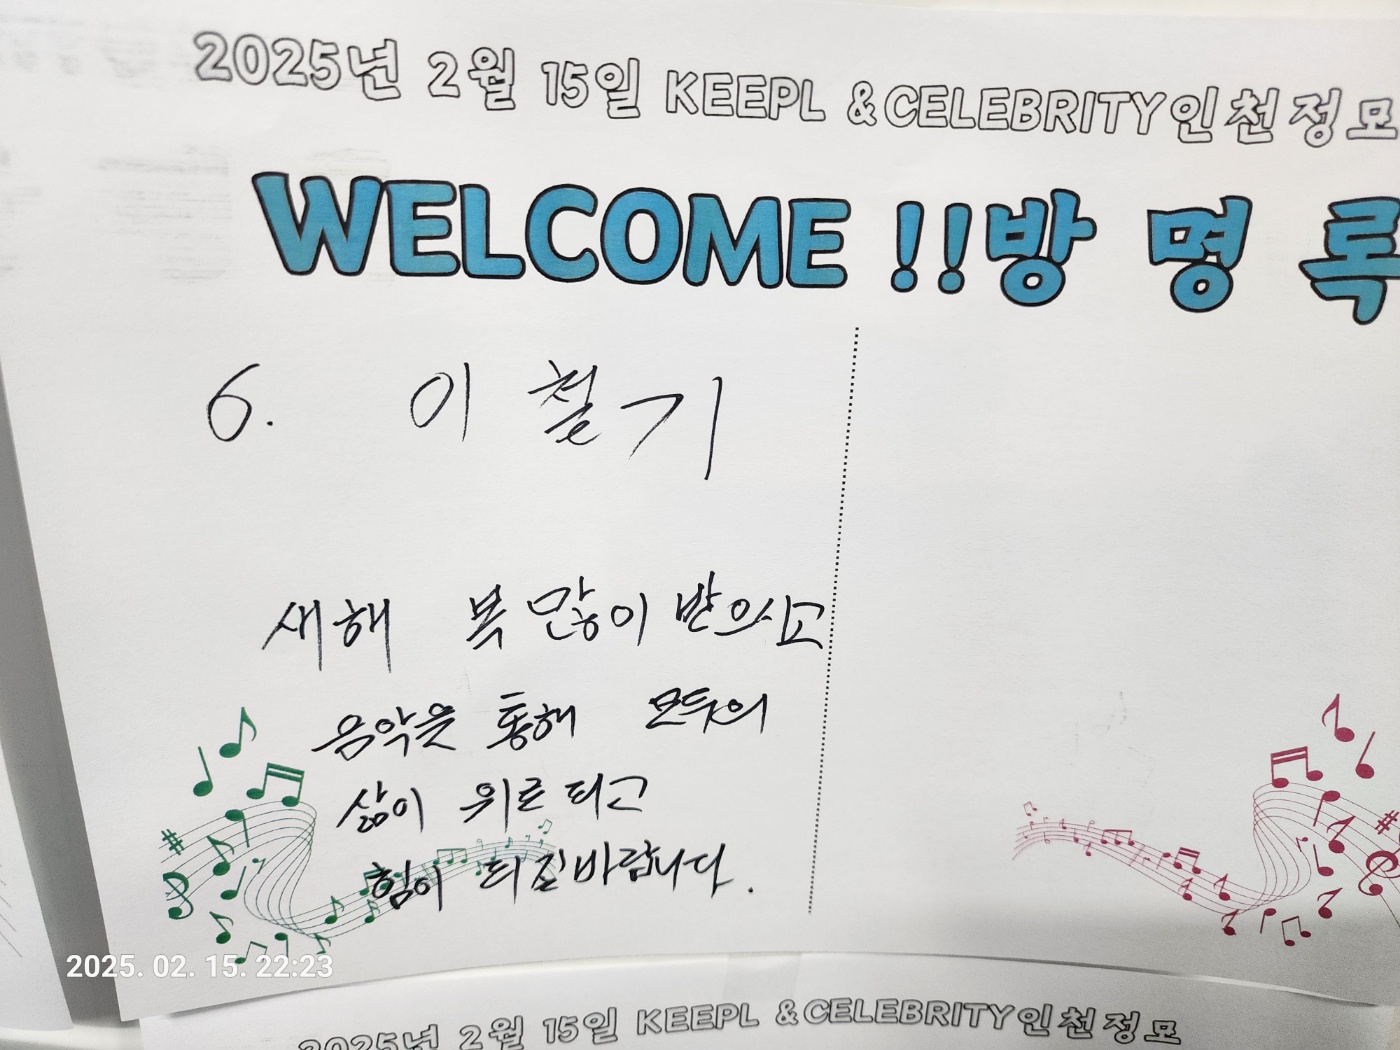 2025년 2월 15일 KEEPL & CELEBRITY인천정모
WELCOME !!방 명 록
6. 이 철 기
새해 복 많이 받으시고
음악을 통해 모두의
삶이 위로 되고
힘이 되길 바랍니다.
2025. 02. 15. 22:23
2025년 2월 15일 KEEPL & CELEBRITY인천정모